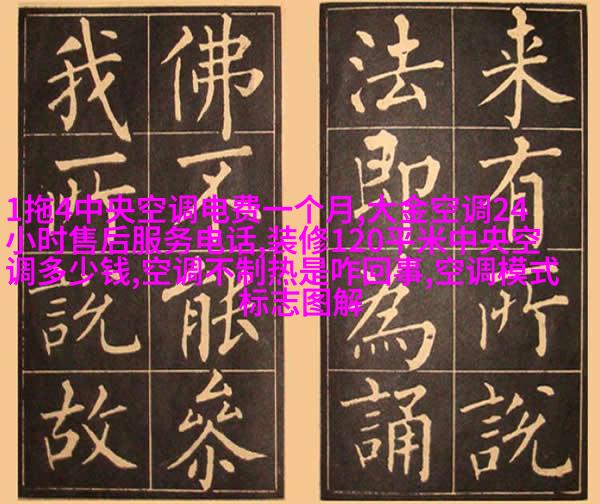 来有所說
法即為誦
佛不能參
我所說故
1拖4中央空调电费一个月,大金空调24
小时售后服务电话,装修120平米中央空
调多少钱,空调不制热是咋回事,空调模式
标志图解